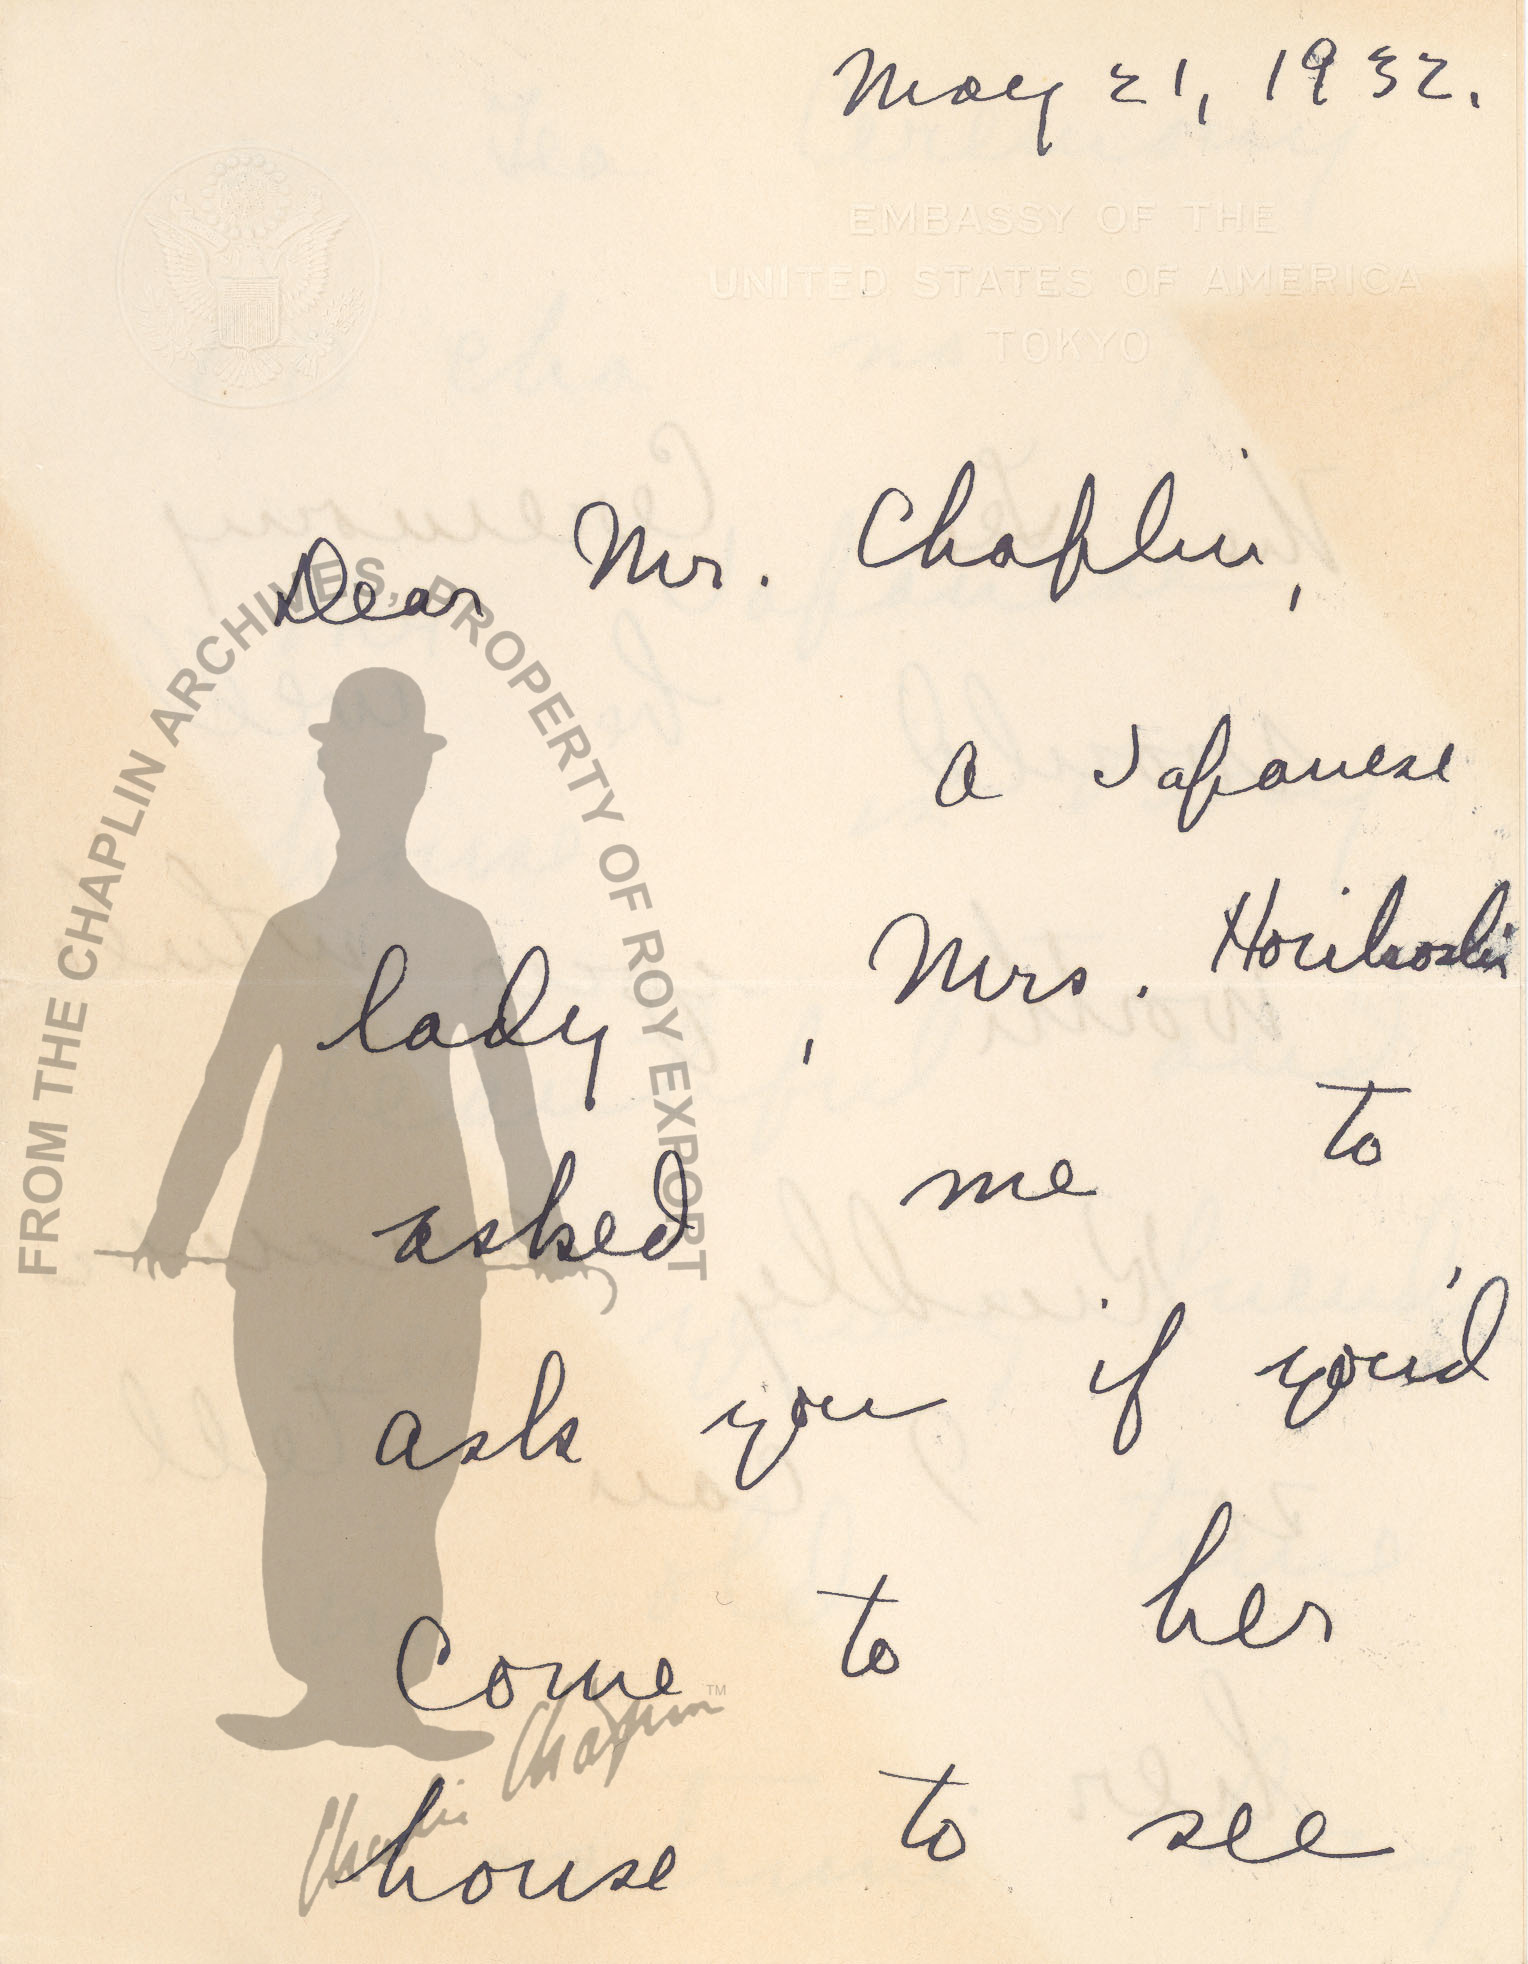 May 21, 1932.
EMBASSY OF THE
UNITED STATES OF AMERICA
TOKYO
Dear Mr. Chaplin,
a Japanese
lady, Mrs. Horikoshi
asked me to
ask you if you'd
come to her
house to see
FROM THE CHAPLIN ARCHIVES, PROPERTY OF ROY EXPORT
Charlie Chaplin™